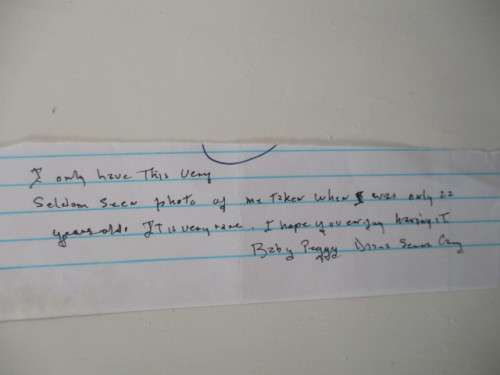 I only have This very
Seldom Seen photo of me Taken when I was only 22
years old. IT is very rare. I hope you enjoy having iT
Baby Peggy Diana Serra Cary